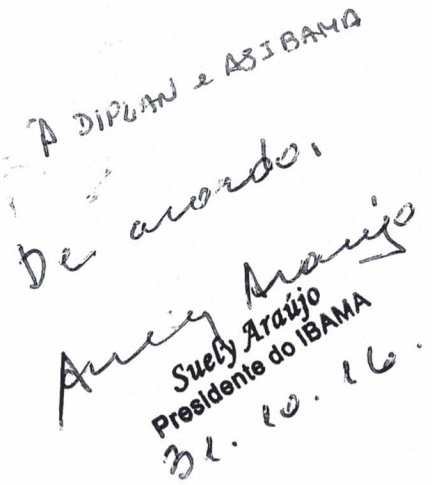 À DIPLAN e ASIBAMA
De acordo.
Suely Araújo
Suely Araújo
Presidente do IBAMA
31.10.16.